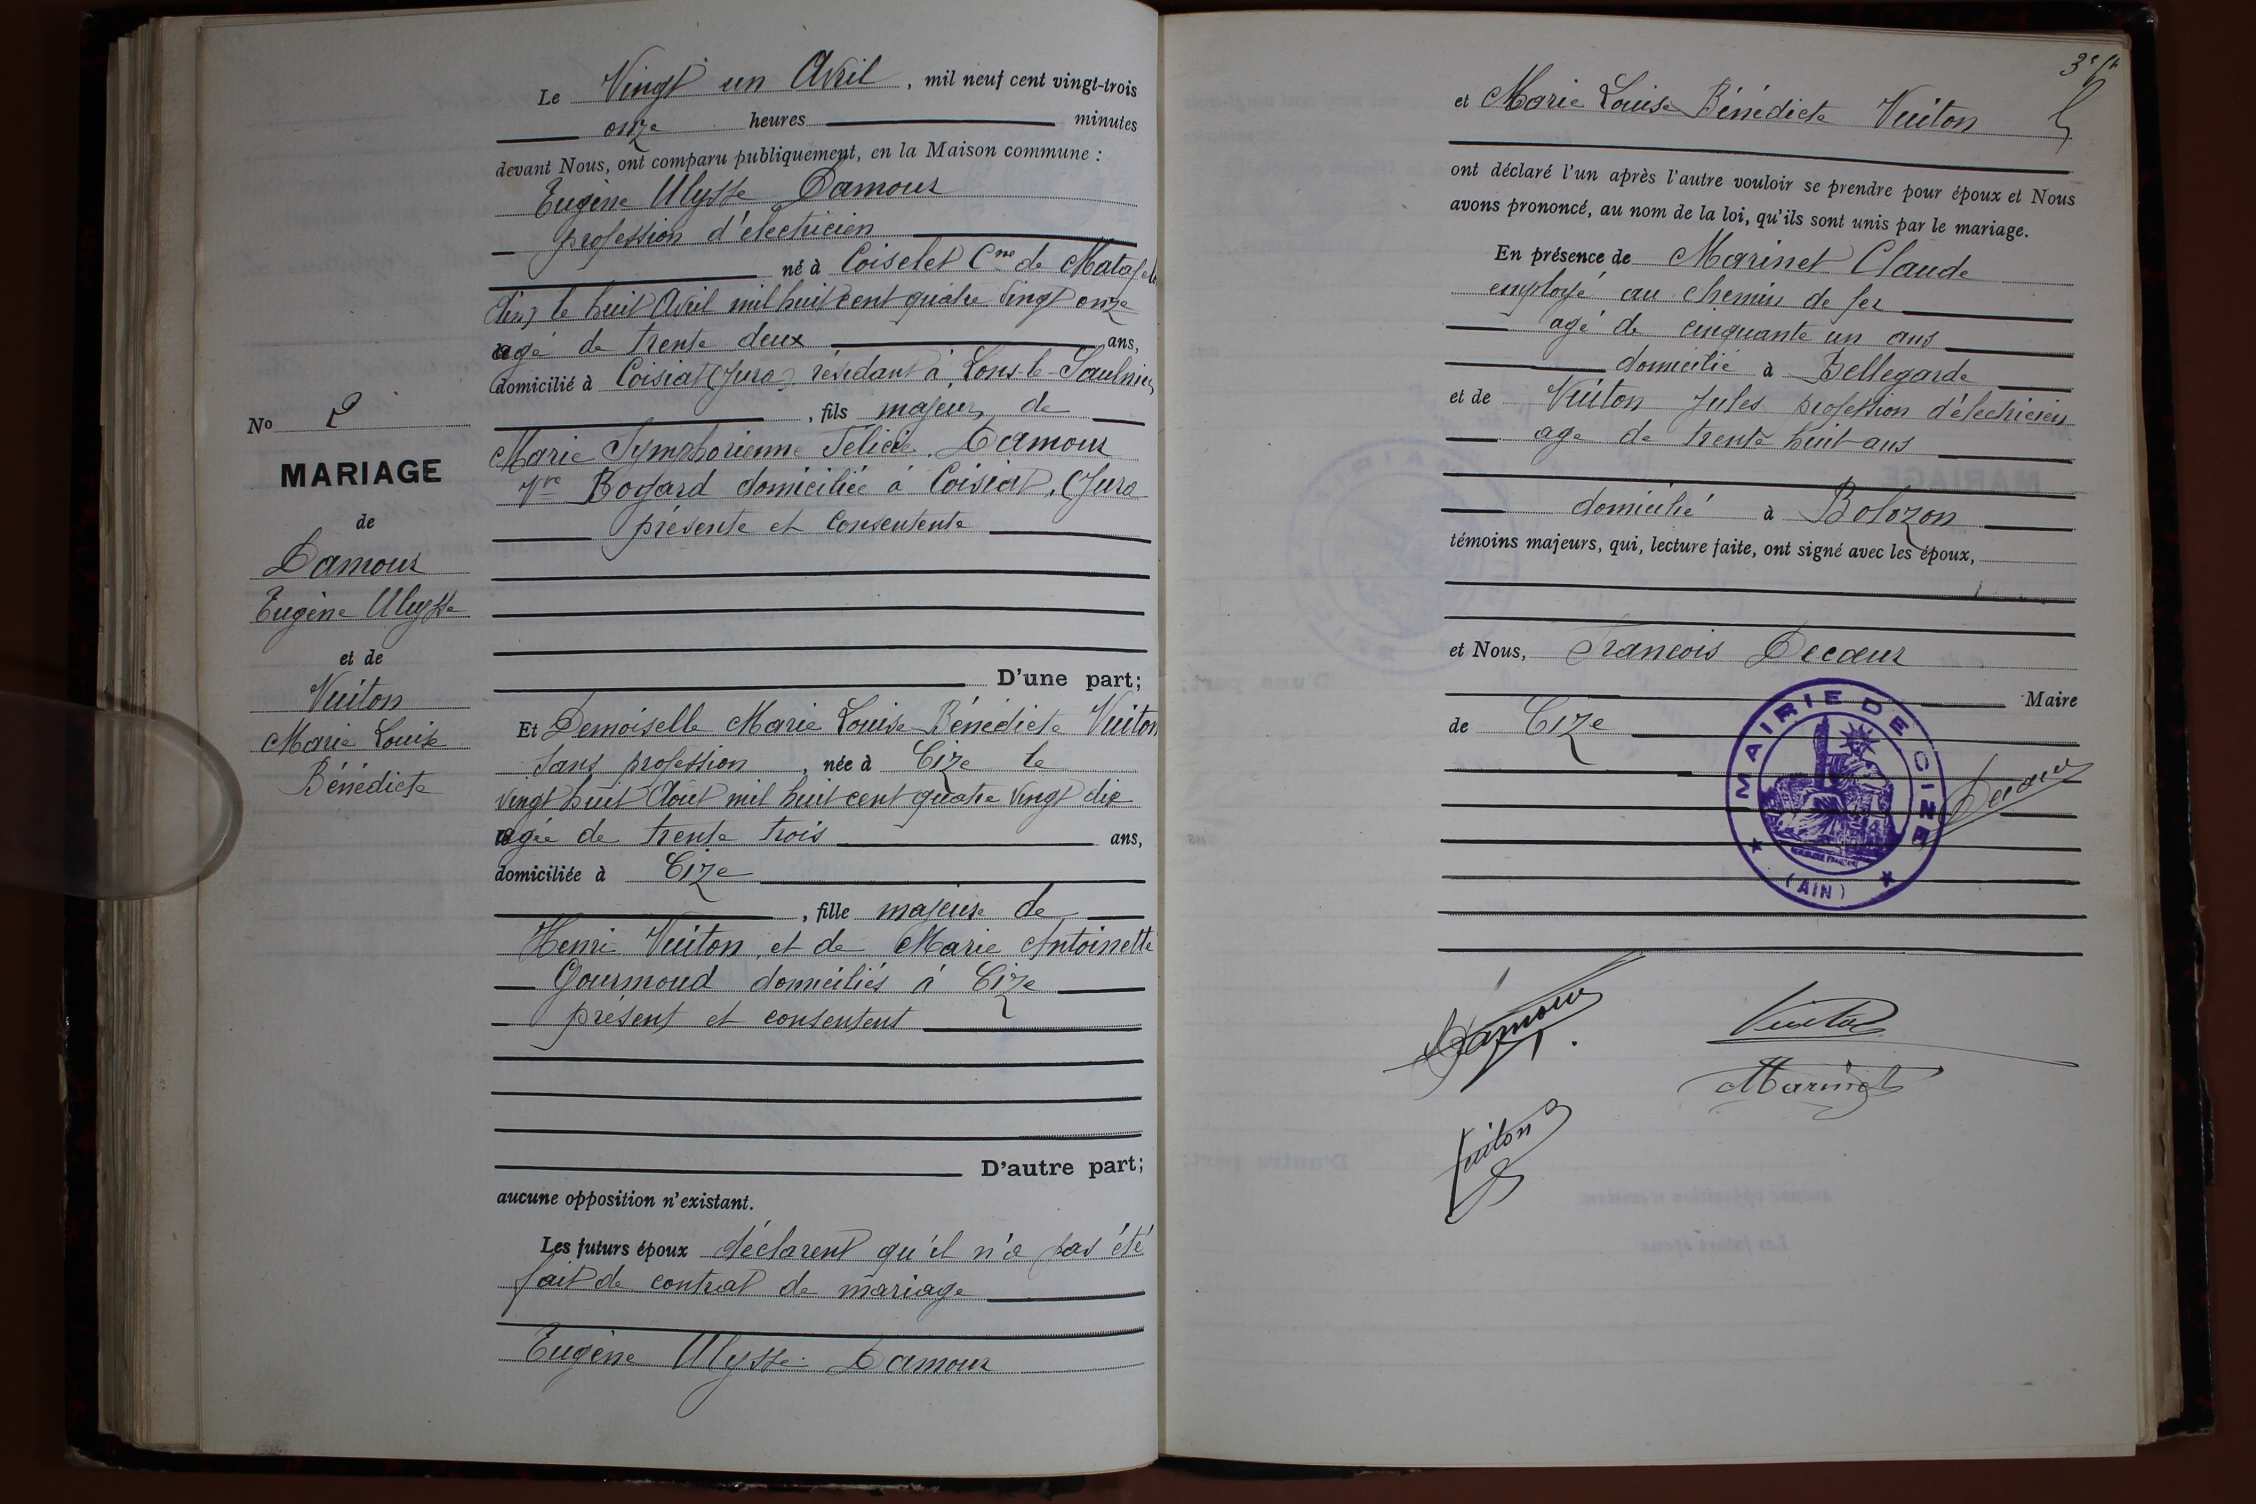 Le Vingt un Avril, mil neuf cent vingt-trois
onze heures minutes
devant Nous, ont comparu publiquement, en la Maison commune :
Eugène Ulysse Damour
profession d'électricien
né à Coiselet Cne de Matafelon
(Ain) le huit Avril mil huit cent quatre vingt onze
agé de trente deux ans,
domicilié à Coisiat (Jura) résidant à Lons-le-Saulnier
, fils majeur de
Marie Symphorienne Félicie Damour
Vve Bogard domiciliée à Coisiat, (Jura
présente et consentente
No 2
MARIAGE
de
Damour
Eugène Ulysse
et de
Vuiton
Marie Louise
Bénédicte
D'une part;
Et Demoiselle Marie Louise Bénédicte Vuiton
sans profession, née à Cize le
vingt huit Aout mil huit cent quatre vingt dix
agée de trente trois ans,
domiciliée à Cize
, fille majeure de
Henri Vuiton, et de Marie Antoinette
Gourmoud domiciliés à Cize
présent et consentent
D'autre part;
aucune opposition n'existant.
Les futurs époux déclarent qu'il n'a pas été
fait de contrat de mariage
Eugène Ulysse Damour
et Marie Louise Bénédicte Vuiton
ont déclaré l'un après l'autre vouloir se prendre pour époux et Nous
avons prononcé, au nom de la loi, qu'ils sont unis par le mariage.
En présence de Marinet Claude
employé au chemin de fer
agé de cinquante un ans
domicilié à Bellegarde
et de Vuiton Jules profession d'électricien
age de trente huit ans
domicilié à Bolozon
témoins majeurs, qui, lecture faite, ont signé avec les époux,
et Nous, Francois Decœur
Maire
de Cize
MAIRIE DE CIZE
(AIN)
Decœur
Damour
Vuiton
Marinet
Vuiton